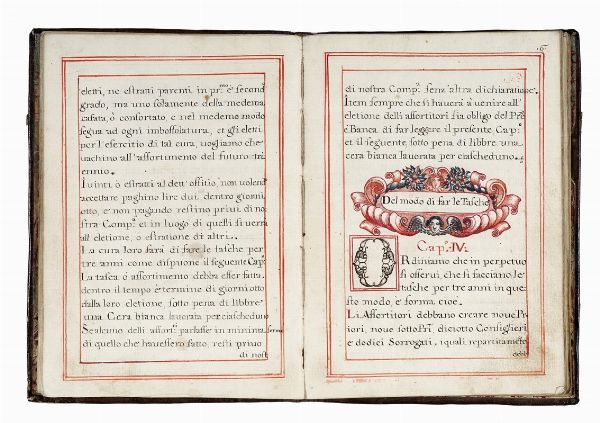 eletti, ne estratti parenti in pr.mo è second
grado, ma uno solamente della medema
casata, ò confortato, e nel medemo modo
segua ad ogni imbossolatura, et gli eletti
per l'esercitio di tal cura, uogliamo che
uachino all'assortimento del futuro tri
ennio.
I uinti ò estratti al dett'offitio, non uolend
accettare paghino lire dui, dentro giorni
otto, e non pagando restino priui di no
stra Comp.a et in luogo di quelli si uerra
all'eletione, o estratione di altri.
La cura loro sarà di fare le tasche per
tre anni come dispuone il seguente Cap.
La tasca è assortimento debba esser fatta
dentro il tempo è termine di giorni otto
dalla loro eletione, sotto pena di libbre
una Cera bianca lauorata per ciascheduno
Se alcuno delli assort.ri parlasse in minima forma
di quello che hauessero fatto, resti priuo
di nost
16
di nostra Comp.a senz'altra dichiaratione
Item sempre che si hauerà à uenire all'
eletione delli assortitori sia obligo del Pro
è Banca di far leggere il presente Cap.o
et il seguente sotto pena di libbre una
cera bianca lauorata per ciascheduno.
Del modo di far le Tasche
Cap.o IV.
ORdiniamo che in perpetuo
si osserui, che si facciano le
tasche per tre anni in que
sto modo, e forma cioe.
Li Assortitori debbano creare noue Pr
iori, noue sottoPri diciotto Consiglieri
e dodici Sorrogati, i quali repartitamete